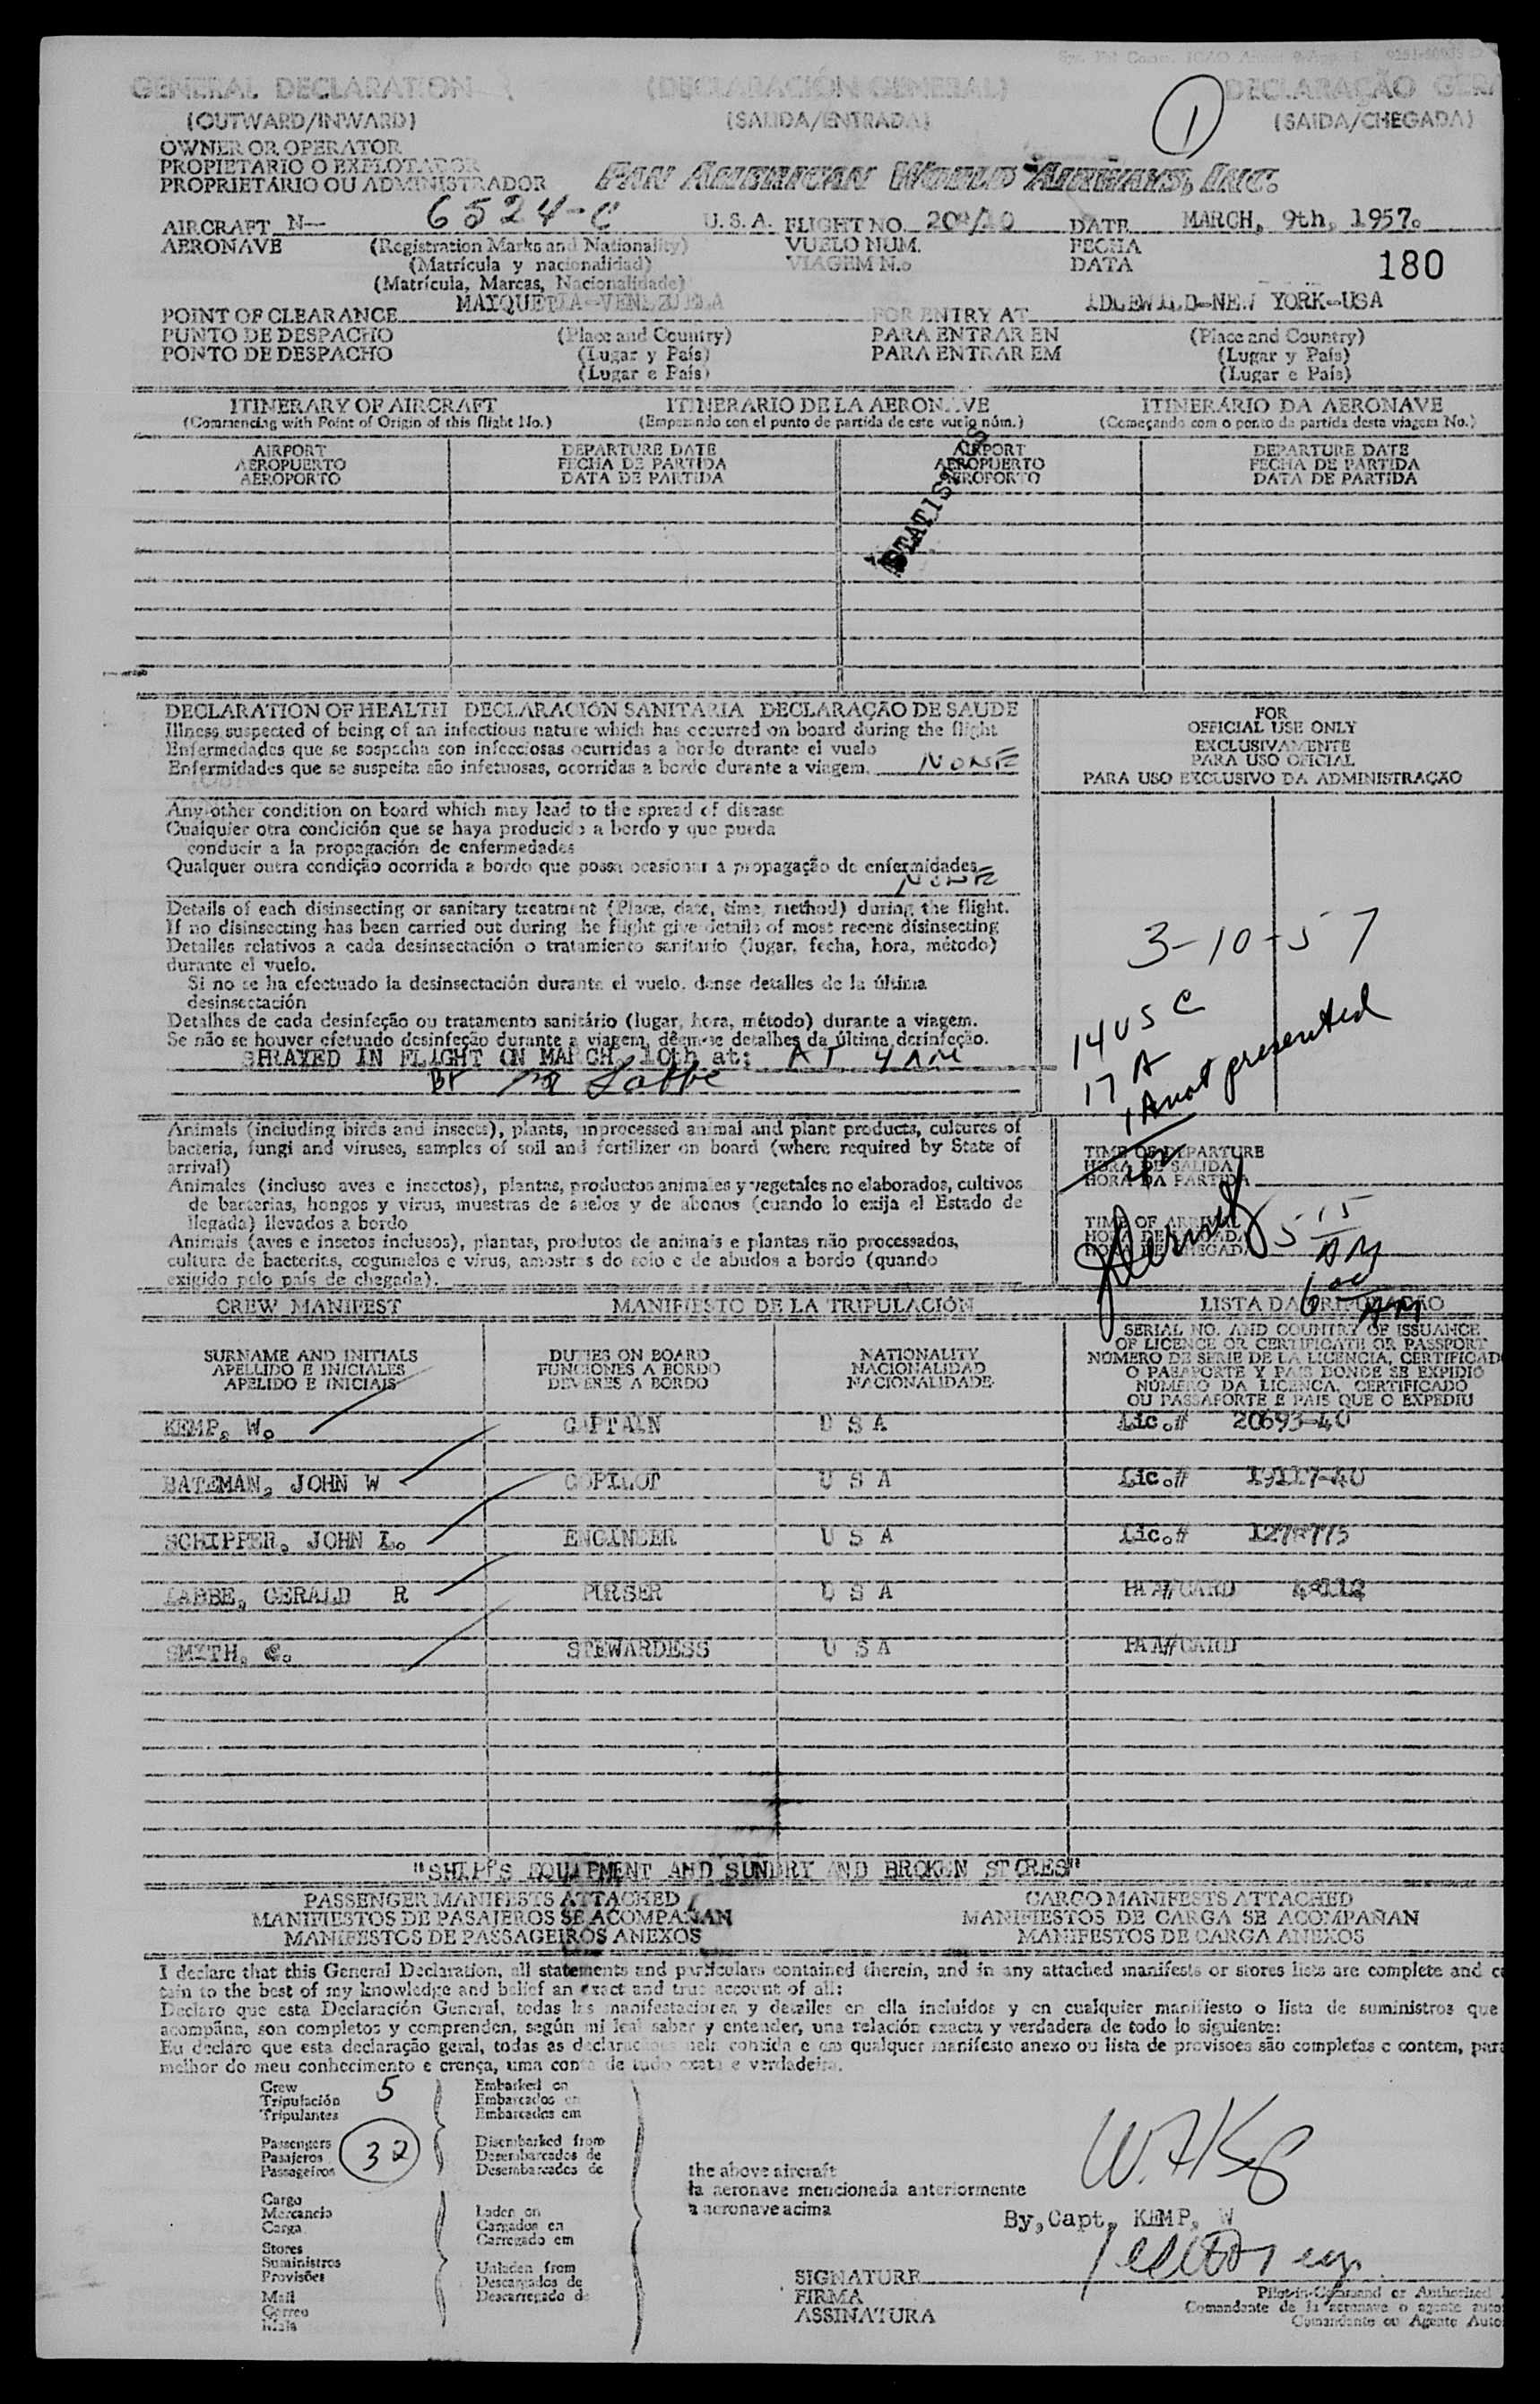 GENERAL DECLARATION (DECLARACIÓN GENERAL) DECLARAÇÃO GERA
(OUTWARD/INWARD) (SALIDA/ENTRADA) (SAIDA/CHEGADA)
1
OWNER OR OPERATOR
PROPIETARIO O EXPLOTADOR
PROPRIETÁRIO OU ADMINISTRADOR PAN AMERICAN WORLD AIRWAYS, INC.
AIRCRAFT N— 6524-C U.S.A. FLIGHT NO. DATE MARCH, 9th, 1957.
AERONAVE (Registration Marks and Nationality) VUELO NUM. FECHA
(Matrícula y nacionalidad) VIAGEM N.o DATA 180
(Matrícula, Marcas, Nacionalidade)
POINT OF CLEARANCE MAIQUETIA-VENEZUELA FOR ENTRY AT IDLEWILD-NEW YORK-USA
PUNTO DE DESPACHO (Place and Country) PARA ENTRAR EN (Place and Country)
PONTO DE DESPACHO (Lugar y País) PARA ENTRAR EM (Lugar y País)
(Lugar e País) (Lugar e País)
ITINERARY OF AIRCRAFT ITINERARIO DE LA AERONAVE ITINERÁRIO DA AERONAVE
(Commencing with Point of Origin of this flight No.) (Empezando con el punto de partida de este vuelo núm.) (Começando com o ponto da partida desta viagem No.)
AIRPORT DEPARTURE DATE AIRPORT DEPARTURE DATE
AEROPUERTO FECHA DE PARTIDA AEROPUERTO FECHA DE PARTIDA
AEROPORTO DATA DE PARTIDA AEROPORTO DATA DE PARTIDA
STATISTICS
DECLARATION OF HEALTH DECLARACIÓN SANITARIA DECLARAÇÃO DE SAUDE
Illness suspected of being of an infectious nature which has occurred on board during the flight
Enfermedades que se sospecha son infecciosas ocurridas a bordo durante el vuelo
Enfermidades que se suspeita são infetuosas, ocorridas a bordo durante a viagem. NONE
FOR
OFFICIAL USE ONLY
EXCLUSIVAMENTE
PARA USO OFICIAL
PARA USO EXCLUSIVO DA ADMINISTRAÇÃO
Any other condition on board which may lead to the spread of disease
Cualquier otra condición que se haya producido a bordo y que pueda
conducir a la propagación de enfermedades
Qualquer outra condição ocorrida a bordo que possa ocasionar a propagação de enfermidades
NONE
Details of each disinsecting or sanitary treatment (Place, date, time, method) during the flight.
If no disinsecting has been carried out during the flight give details of most recent disinsecting
Detalles relativos a cada desinsectación o tratamiento sanitario (lugar, fecha, hora, método)
durante el vuelo.
Si no se ha efectuado la desinsectación durante el vuelo, dense detalles de la última
desinsectación
Detalhes de cada desinfeção ou tratamento sanitário (lugar, hora, método) durante a viagem.
Se não se houver efetuado desinfeção durante a viagem, dêem-se detalhes da última desinfeção.
SPRAYED IN FLIGHT ON MARCH, 10th at: AT 4 AM
BY Labbe
3-10-57
14 USC
17 A
1 A not presented
Animals (including birds and insects), plants, unprocessed animal and plant products, cultures of
bacteria, fungi and viruses, samples of soil and fertilizer on board (where required by State of
arrival)
Animales (incluso aves e insectos), plantas, productos animales y vegetales no elaborados, cultivos
de bacterias, hongos y virus, muestras de suelos y de abonos (cuando lo exija el Estado de
llegada) llevados a bordo
Animais (aves e insetos inclusos), plantas, produtos de animais e plantas não processados,
cultura de bacterias, cogumelos e virus, amostras do solo e de abudos a bordo (quando
exigido pelo país de chegada).
TIME OF DEPARTURE
HORA DE SALIDA
HORA DA PARTIDA
TIME OF ARRIVAL 5 15
HORA DE LLEGADA AM
HORA DE CHEGADA 6 00 AM
CREW MANIFEST MANIFIESTO DE LA TRIPULACIÓN LISTA DA TRIPULAÇÃO
SURNAME AND INITIALS DUTIES ON BOARD NATIONALITY SERIAL NO. AND COUNTRY OF ISSUANCE
APELLIDO E INICIALES FUNCIONES A BORDO NACIONALIDAD OF LICENCE OR CERTIFICATE OR PASSPORT
APELIDO E INICIAIS DEVERES A BORDO NACIONALIDADE NÚMERO DE SERIE DE LA LICENCIA, CERTIFICAD
O PASAPORTE Y PAIS DONDE SE EXPIDIÓ
NÚMERO DA LICENCA, CERTIFICADO
OU PASSAPORTE E PAIS QUE O EXPEDIU
KEMP, W. CAPTAIN U S A Lic.# 20693-40
BATEMAN, JOHN W COPILOT U S A Lic.# 19117-40
SCHIPPER, JOHN L. ENGINEER U S A Lic.# 1278775
LABBE, GERALD R PURSER U S A PAA#CARD
SMITH, C. STEWARDESS U S A PAA#CARD
"SHIP'S EQUIPMENT AND SUNDRY AND BROKEN STORES"
PASSENGER MANIFESTS ATTACHED CARGO MANIFESTS ATTACHED
MANIFIESTOS DE PASAJEROS SE ACOMPAÑAN MANIFIESTOS DE CARGA SE ACOMPAÑAN
MANIFESTOS DE PASSAGEIROS ANEXOS MANIFESTOS DE CARGA ANEXOS
I declare that this General Declaration, all statements and particulars contained therein, and in any attached manifests or stores lists are complete and c
tain to the best of my knowledge and belief an exact and true account of all:
Declaro que esta Declaración General, todas las manifestaciones y detalles en ella incluidos y en cualquier manifiesto o lista de suministros que
acompaña, son completos y comprenden, según mi leal saber y entender, una relación exacta y verdadera de todo lo siguiente:
Eu declaro que esta declaração geral, todas as declarações nela contida e em qualquer manifesto anexo ou lista de provisoes são completas e contem, para
melhor do meu conhecimento e crença, uma conta de tudo exata e verdadeira.
Crew 5 Embarked on
Tripulación Embarcados en
Tripulantes Embarcados em
Passengers 32 Disembarked from
Pasajeros Desembarcados de
Passageiros Desembarcados de
the above aircraft
la aeronave mencionada anteriormente
a aeronave acima
Cargo Laden on
Mercancia Cargados en
Carga Carregado em
Stores Unladen from
Suministros Descargados de
Provisões Descarregado de
Mail
Correo
Mala
By, Capt, KEMP, W
SIGNATURE
FIRMA
ASSINATURA
Pilot-in-Command or Authorized
Comandante de la aeronave o agente auto
Comandante ou Agente Auto